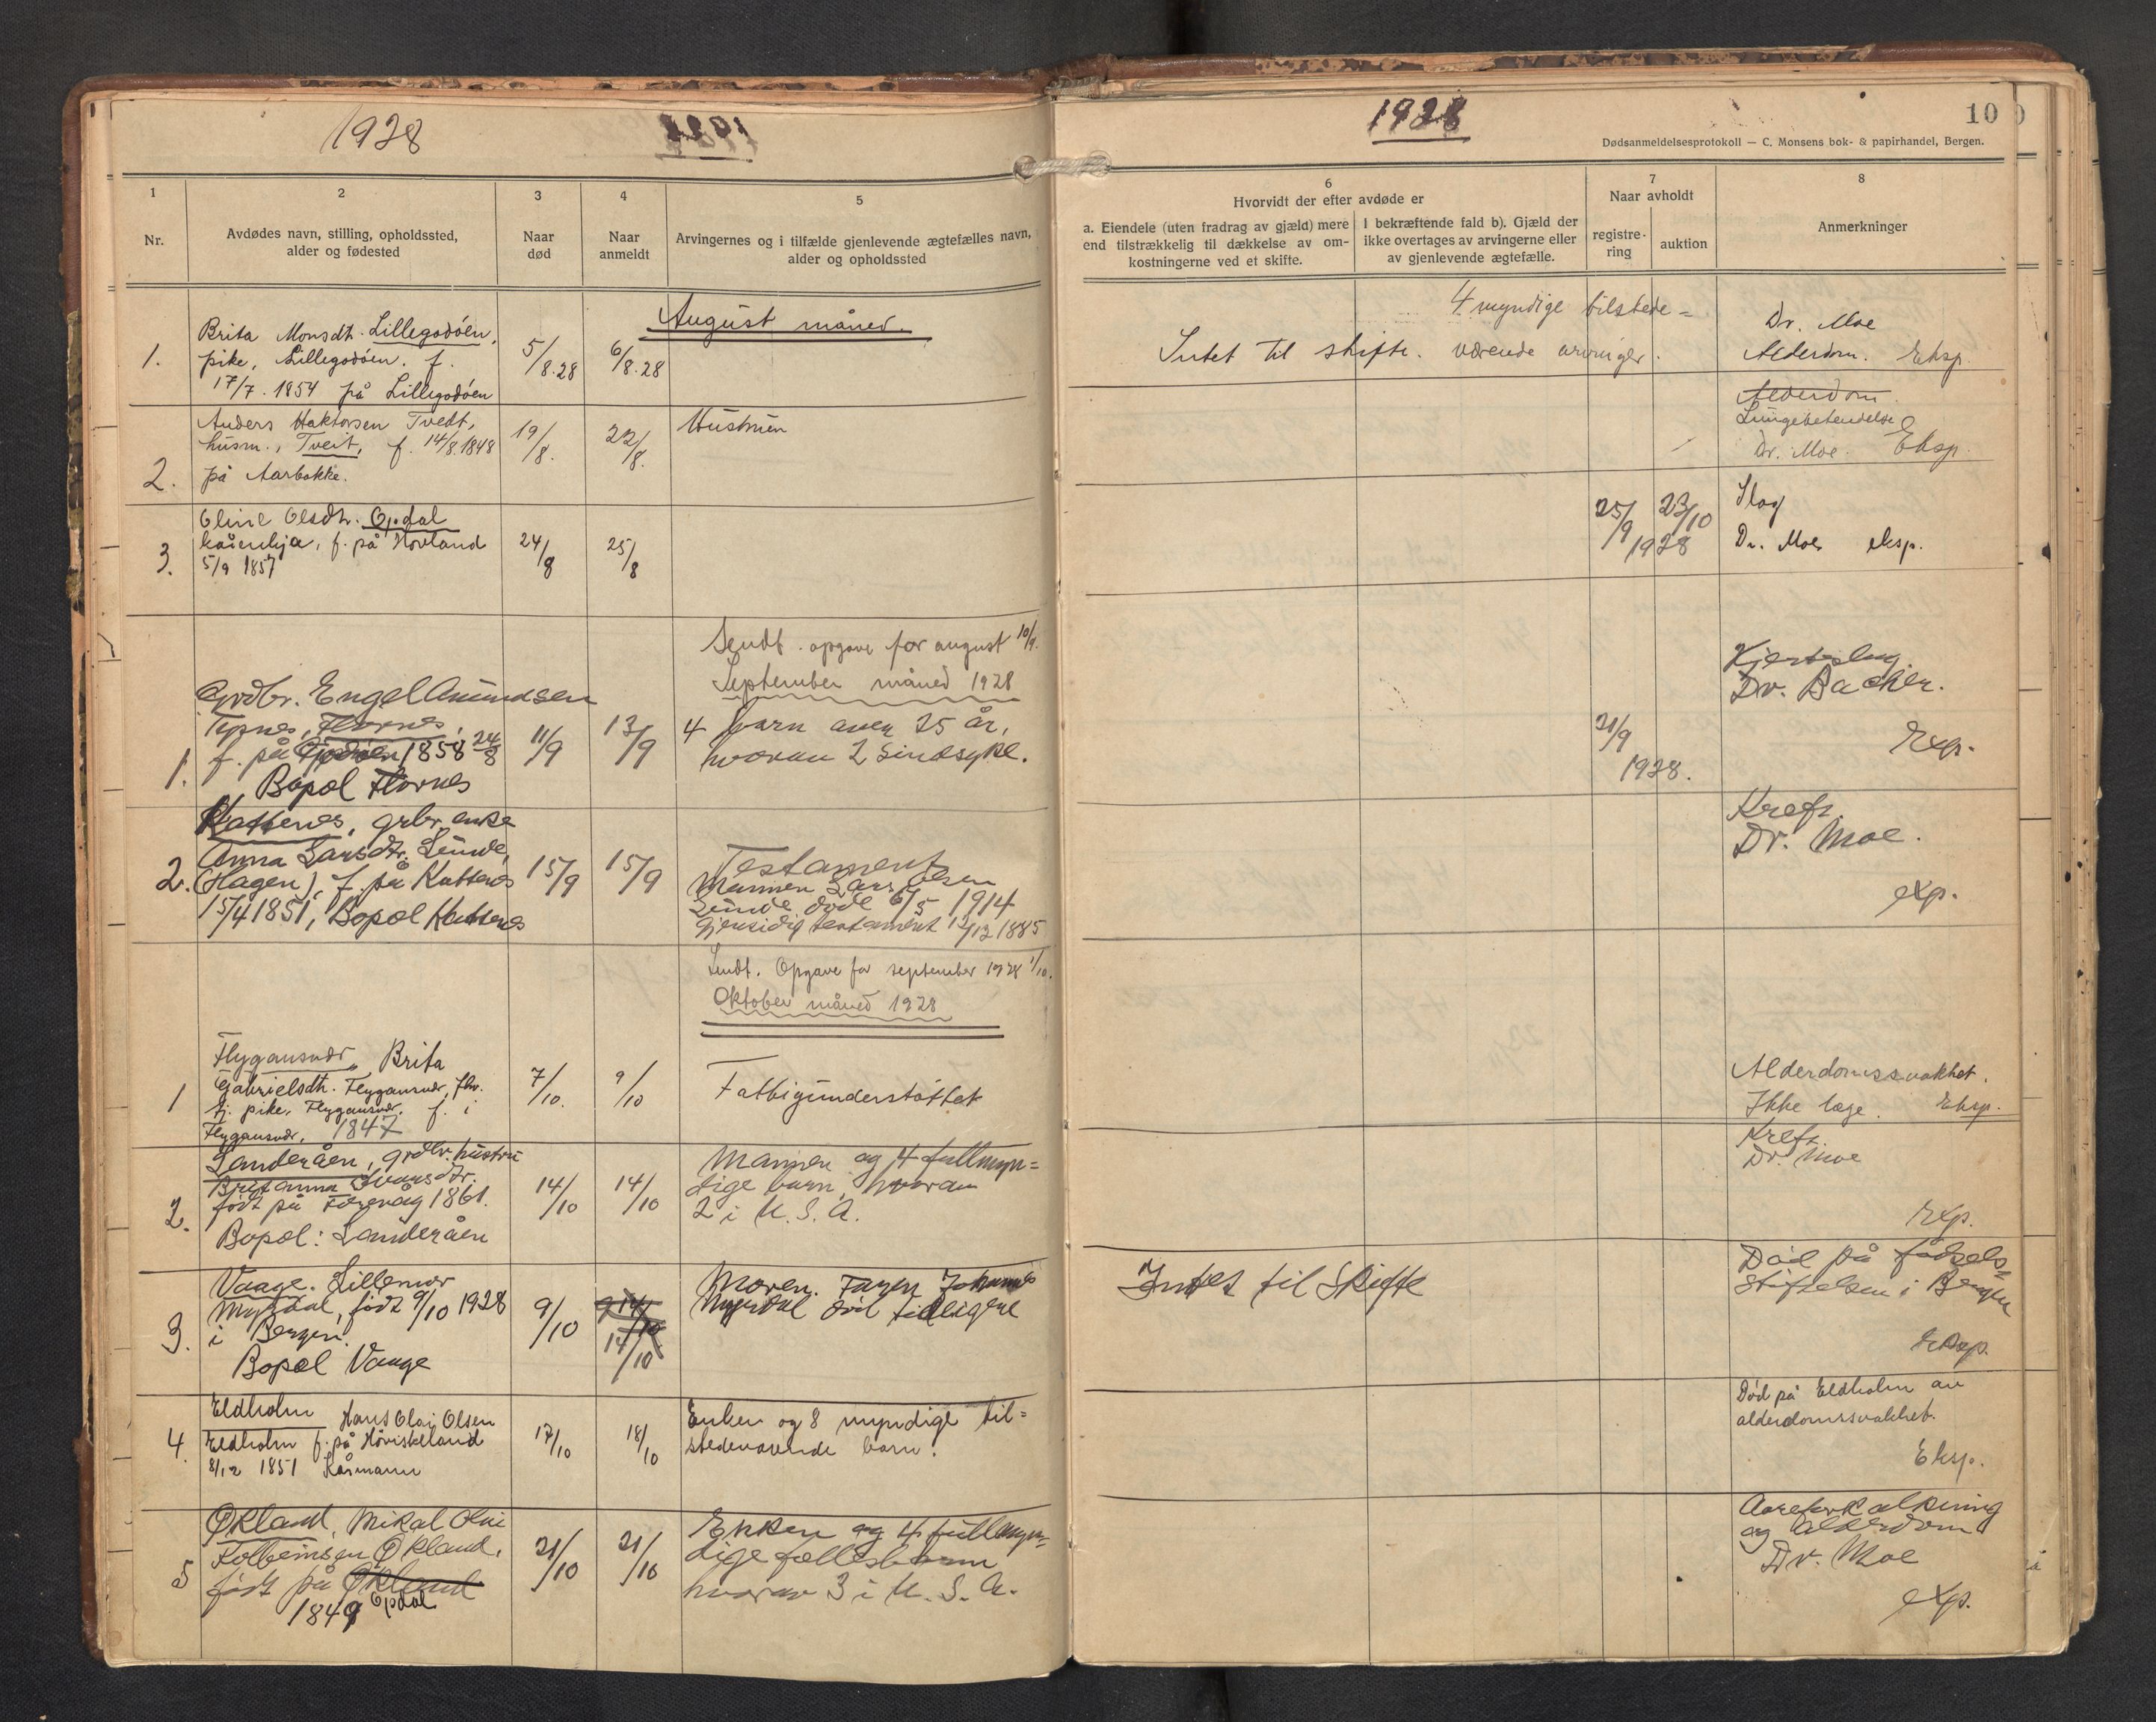 1928
1928
10
Dødsanmeldelsesprotokoll — C. Monsens bok- & papirhandel, Bergen.
1
2
3
4
5
6
7
8
Nr.
Avdødes navn, stilling, opholdssted,
alder og fødested
Naar
død
Naar
anmeldt
Arvingernes og i tilfælde gjenlevende ægtefælles navn,
alder og opholdssted
Hvorvidt der efter avdøde er
a. Eiendele (uten fradrag av gjæld) mere
end tilstrækkelig til dækkelse av om-
kostningerne ved et skifte.
I bekræftende fald b). Gjæld der
ikke overtages av arvingerne eller
av gjenlevende ægtefælle.
Naar avholdt
registre-
ring
auktion
Anmerkninger
August måned.
1.
Brita Monsdt. Lillegodöen,
pike, Lillegodöen. f.
17/7. 1854 på Lillegodöen
5/8.28
6/8.28
Intet til skifte.
4 myndige tilstede-
værende arvinger.
Dr. Moe
Alderdom. Eksp.
2.
Anders Haktorsen Tvedt,
husm., Tveit, f. 14/8.1848
på Aarbakke.
19/8.
22/8.
Hustruen
Alderdom
Lungebetendelse
Dr. Moe. Eksp.
3.
Oline Olsdtr. Opdal
kårenkja, f. på Hovland
5/9 1857
24/8
25/8
25/9
23/10
1928
Slag
Dr. Moe eksp.
Sendt opgave for august 10/9.
September måned 1928
1.
Grdbr. Engel Amundsen
f. på 1858 24/8
Bopel
11/9
13/9
4 barn over 25 år,
hvorav 2 sindsyke.
21/9
1928.
Dr. Backer.
Exp.
2.
Kattenes, grbr. enke
Anna Larsdtr. Lunde,
(Hagen), f. på Kattenes
15/4 1851, Bopel Kattenes
15/9
15/9
Testament
Mannen Lars Olsen
Lunde døde 6/5 1914
Gjensidig testament 12/12 1885
Kreft
Dr. Moe.
exp.
Sendt. Opgave for september 1928 1/10.
Oktober måned 1928
1
Flygansvær, Brita
Gabrielsdtr. Flygansvær, fhv.
tj. pike, Flygansvær. f. i
Flygansvær. 1847
7/10.
9/10
Fattigunderstöttet
Alderdomssvakhet.
Ikke læge. Eksp.
2.
Landeråen, grdbr. hustru
Britanna Ivarsdtr.
født på Förevåg 1861.
Bopel: Landeråen
14/10
14/10
Mannen og 4 fullmyn=
dige barn, hvorav
2 i U.S.A.
Kreft.
Dr. Moe
Exp.
3.
Vaage. Lillemor
Myrdal, født 9/10 1928
i Bergen.
Bopel Vaage
9/10
14/10
Moren. Faren Johannes
Myrdal död tidligere
Intet til Skifte
Död på födsels=
stiftelsen i Bergen
Eksp.
4.
Eldholm Hans Olai Olsen
Eldholm f. på Höviskeland
8/12 1851 Kårmann
17/10
18/10
Enken og 8 myndige til=
stedeværende barn.
Död på Eldholm av
alderdomssvakhet.
Eksp.
5
Økland, Mikal Olai
Kolbeinsen Økland,
født på Økland
Opdal
1849
21/10
21/10
Enken og 4 fullmyn=
dige fellesbarn
hvorav 3 i U.S.A.
Aareforkalkning
og Alderdom
Dr. Moe
exp.